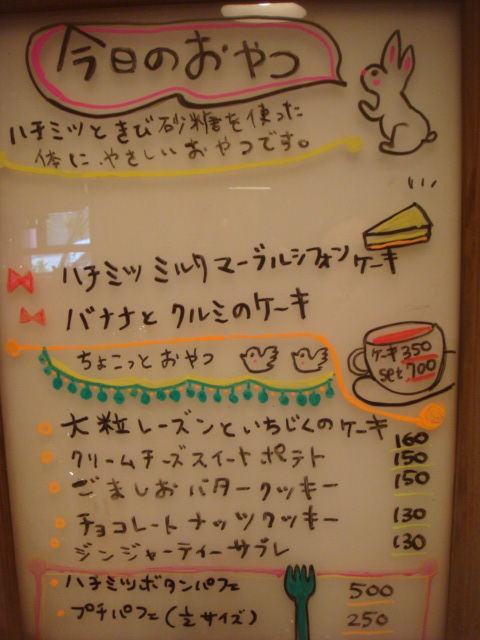 今日のおやつ
ハチミツときび砂糖を使った
体に、やさしいおやつです。
ハチミツミルクマーブルシフォンケーキ
バナナとクルミのケーキ
ケーキ350
set 700
ちょこっとおやつ
大粒レーズンといちじくのケーキ 160
クリームチーズスイートポテト 150
ごましおバタークッキー 150
チョコレートナッツクッキー 130
ジンジャーティーサブレ 130
ハチミツボタンパフェ 500
プチパフェ(1/2サイズ) 250